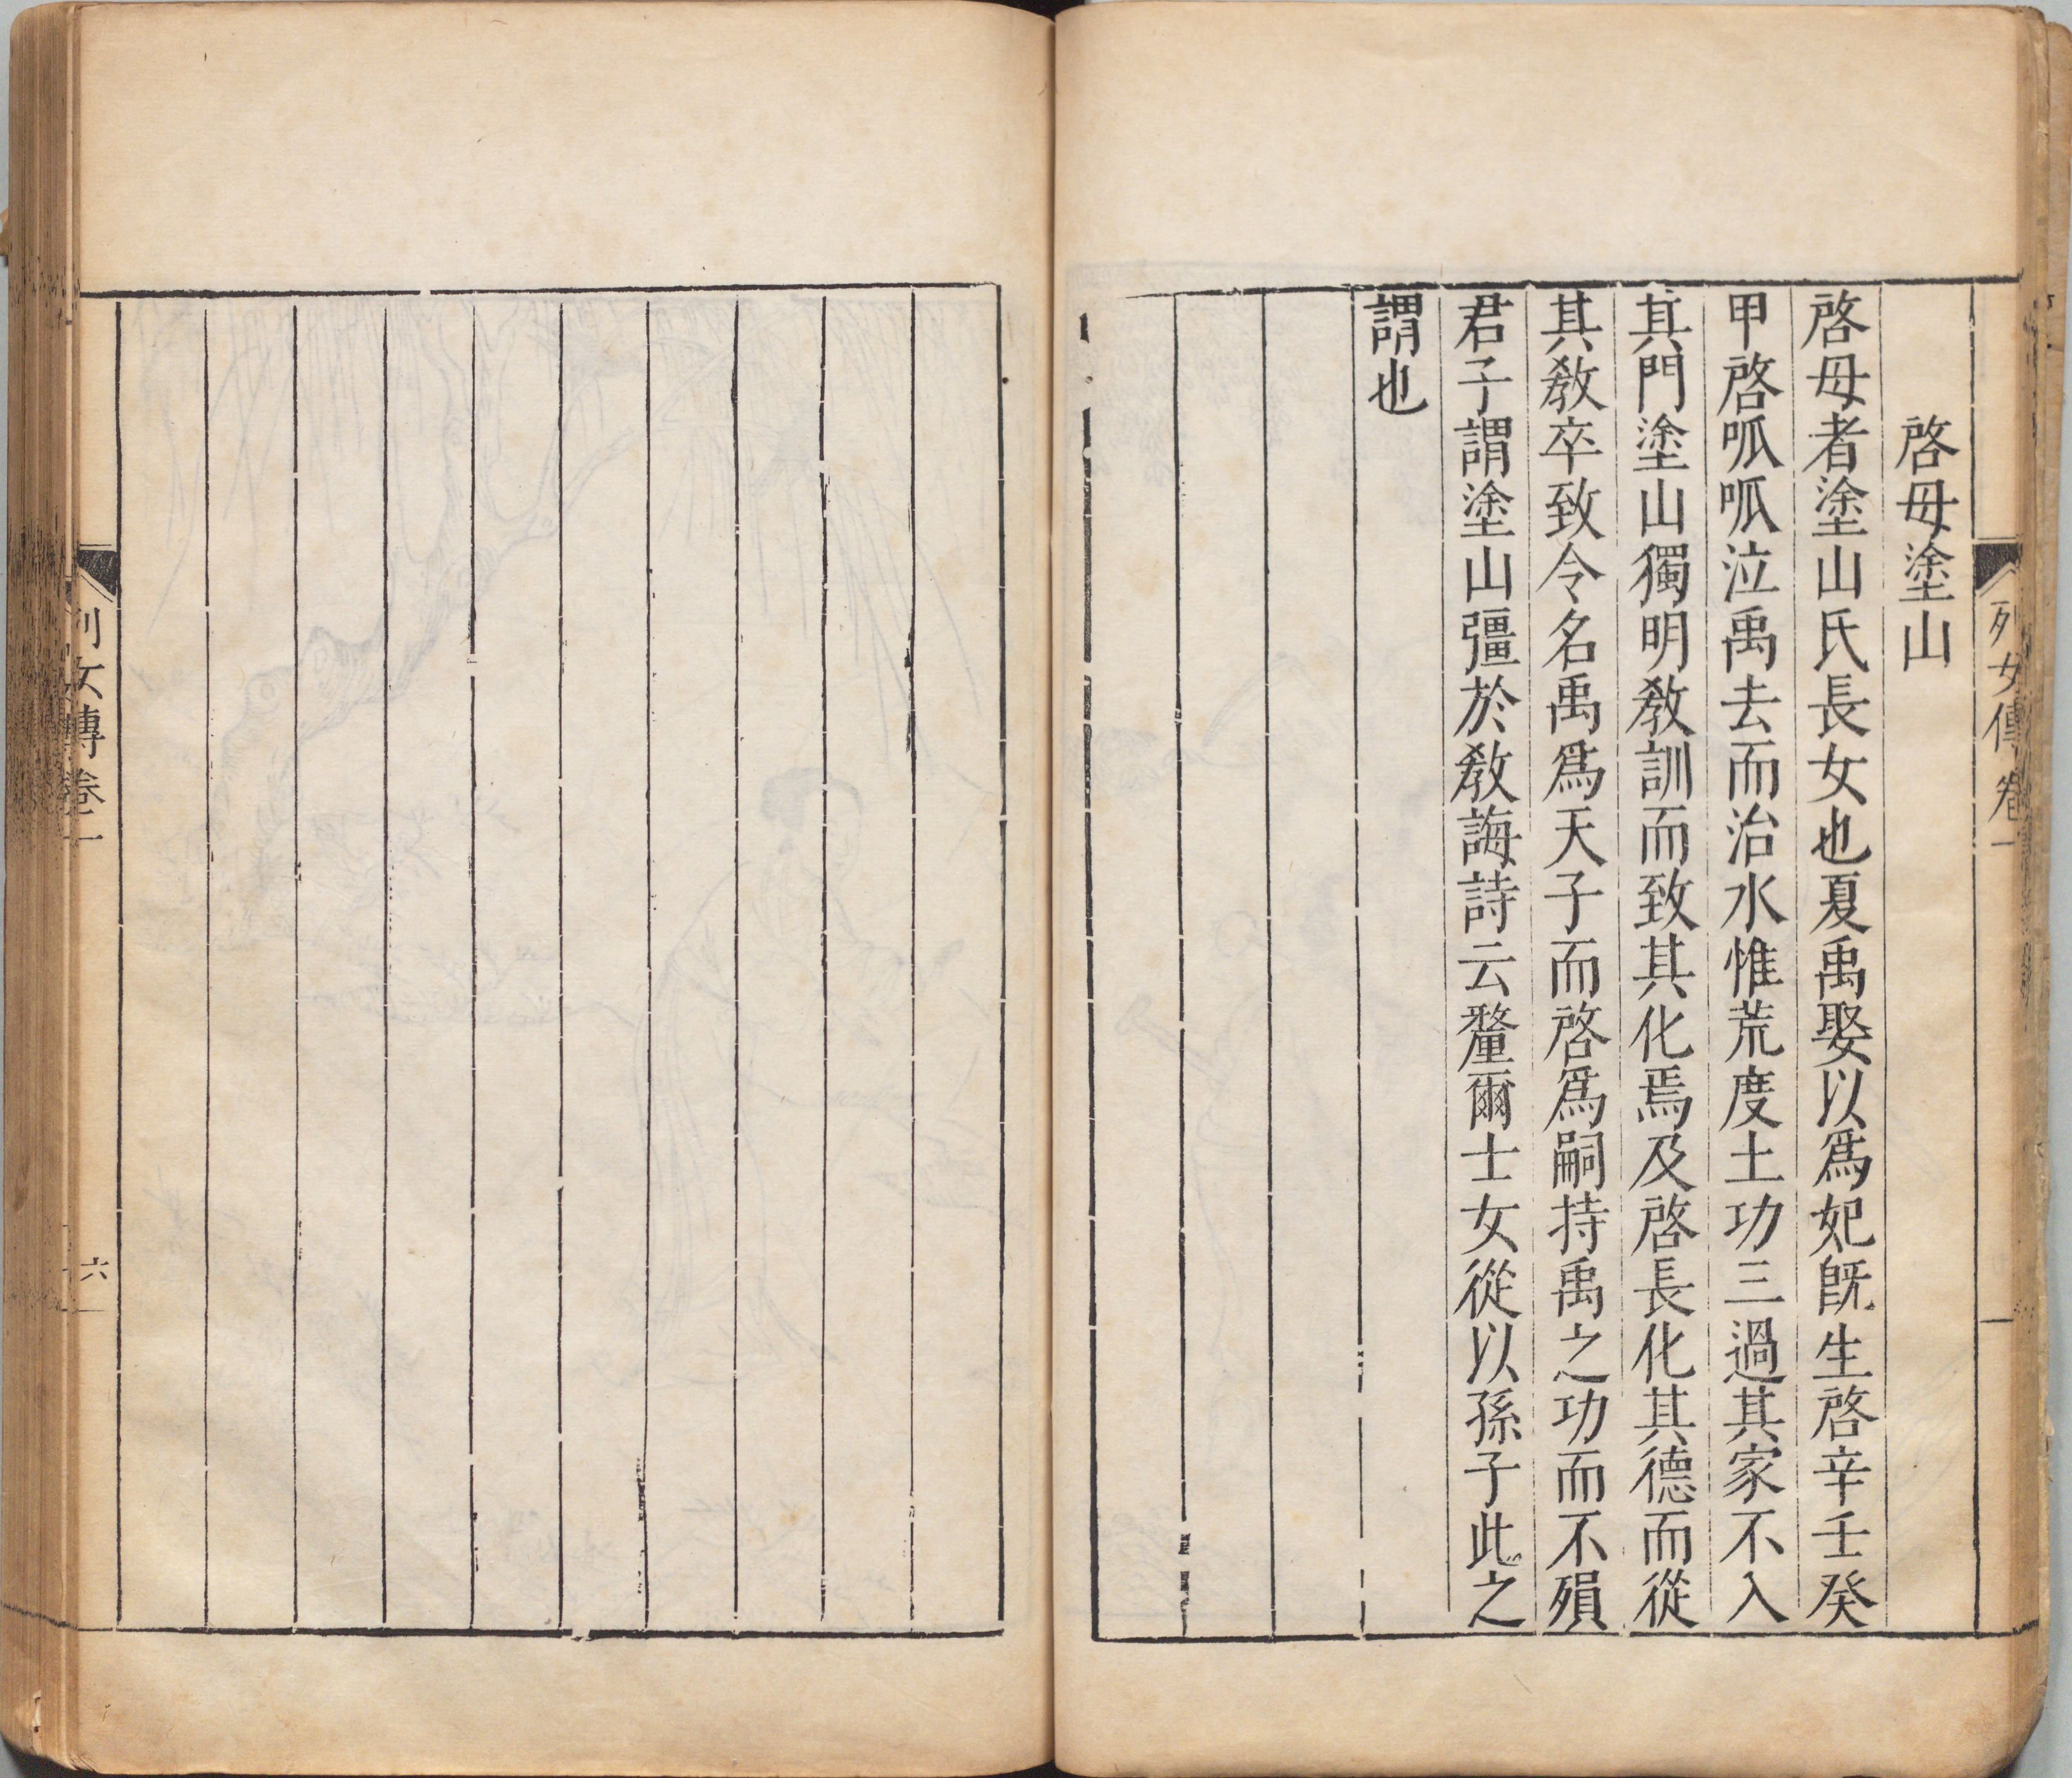 列女傳卷一
啓母塗山
啓母者塗山氏長女也夏禹娶以爲妃旣生啓辛壬癸
甲啓呱呱泣禹去而治水惟荒度土功三過其家不入
其門塗山獨明敎訓而致其化焉及啓長化其德而從
其敎卒致令名禹爲天子而啓爲嗣持禹之功而不殞
君子謂塗山彊於敎誨詩云釐爾士女從以孫子此之
謂也
列女傳卷一
六